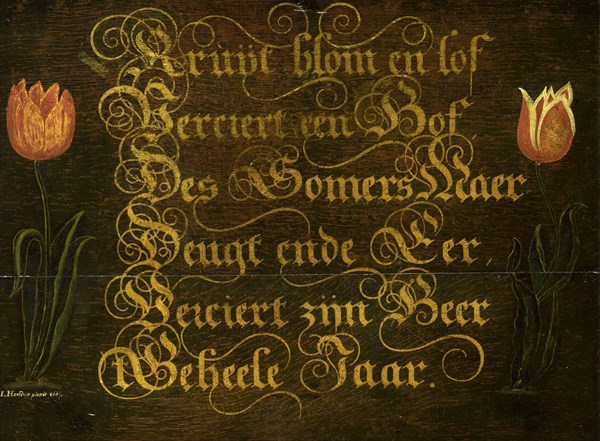 Kruÿt blom en lof
Verciert een Hof,
Des Somers Maer
Deugt ende Eer,
Verciert zijn Heer
tGeheele Jaar.
pinxit